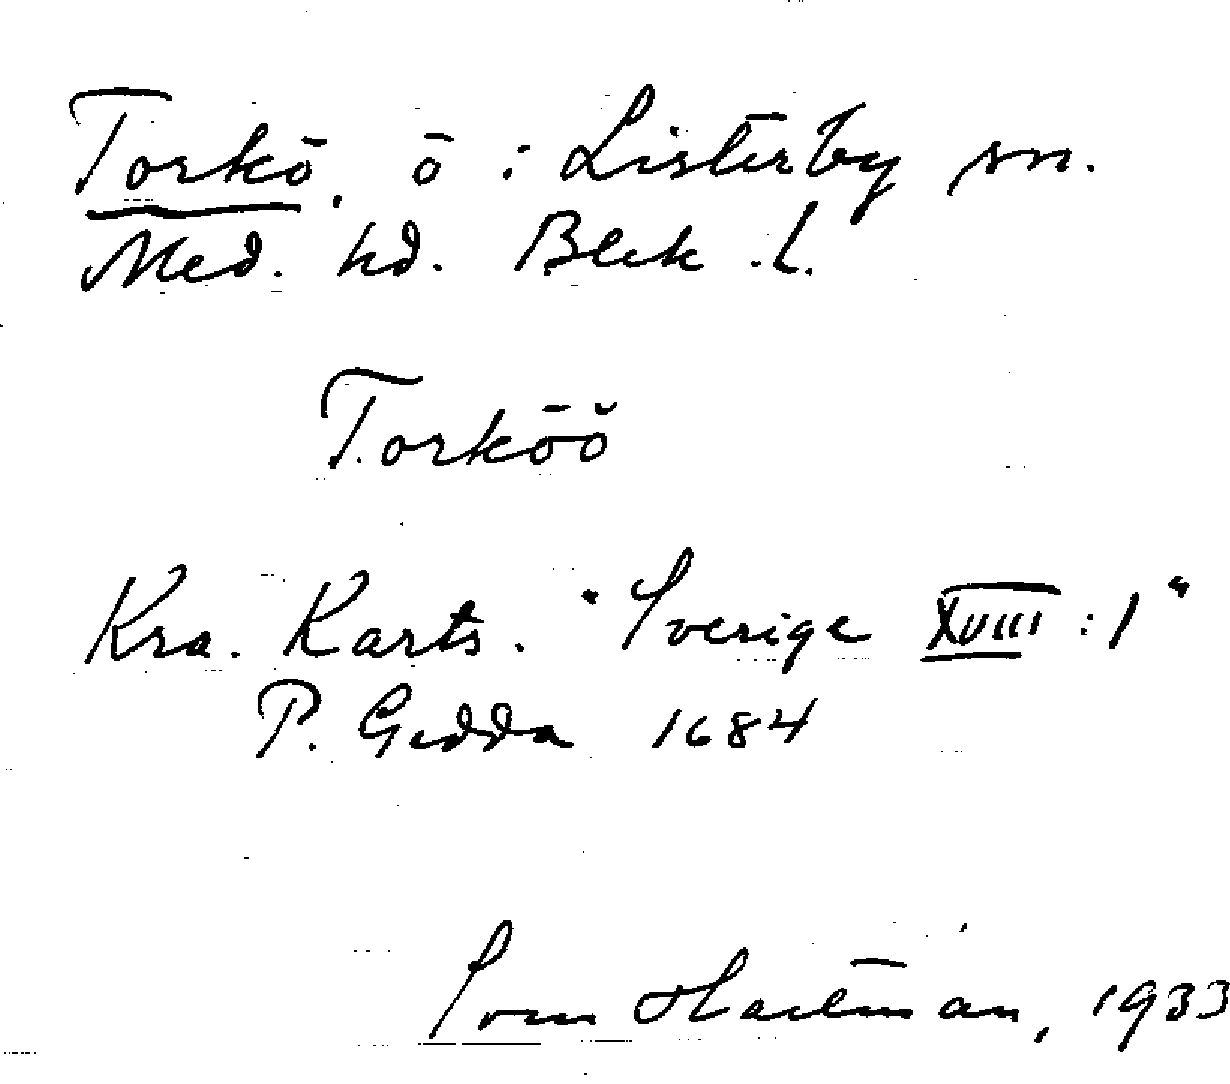 Torkö, ö i Listerby sn.
Med. hd. Blek. l.
Torköö
Kra. Karts. "Sverige XVIII:1"
P. Gedda 1684
Sven Hartman, 1933